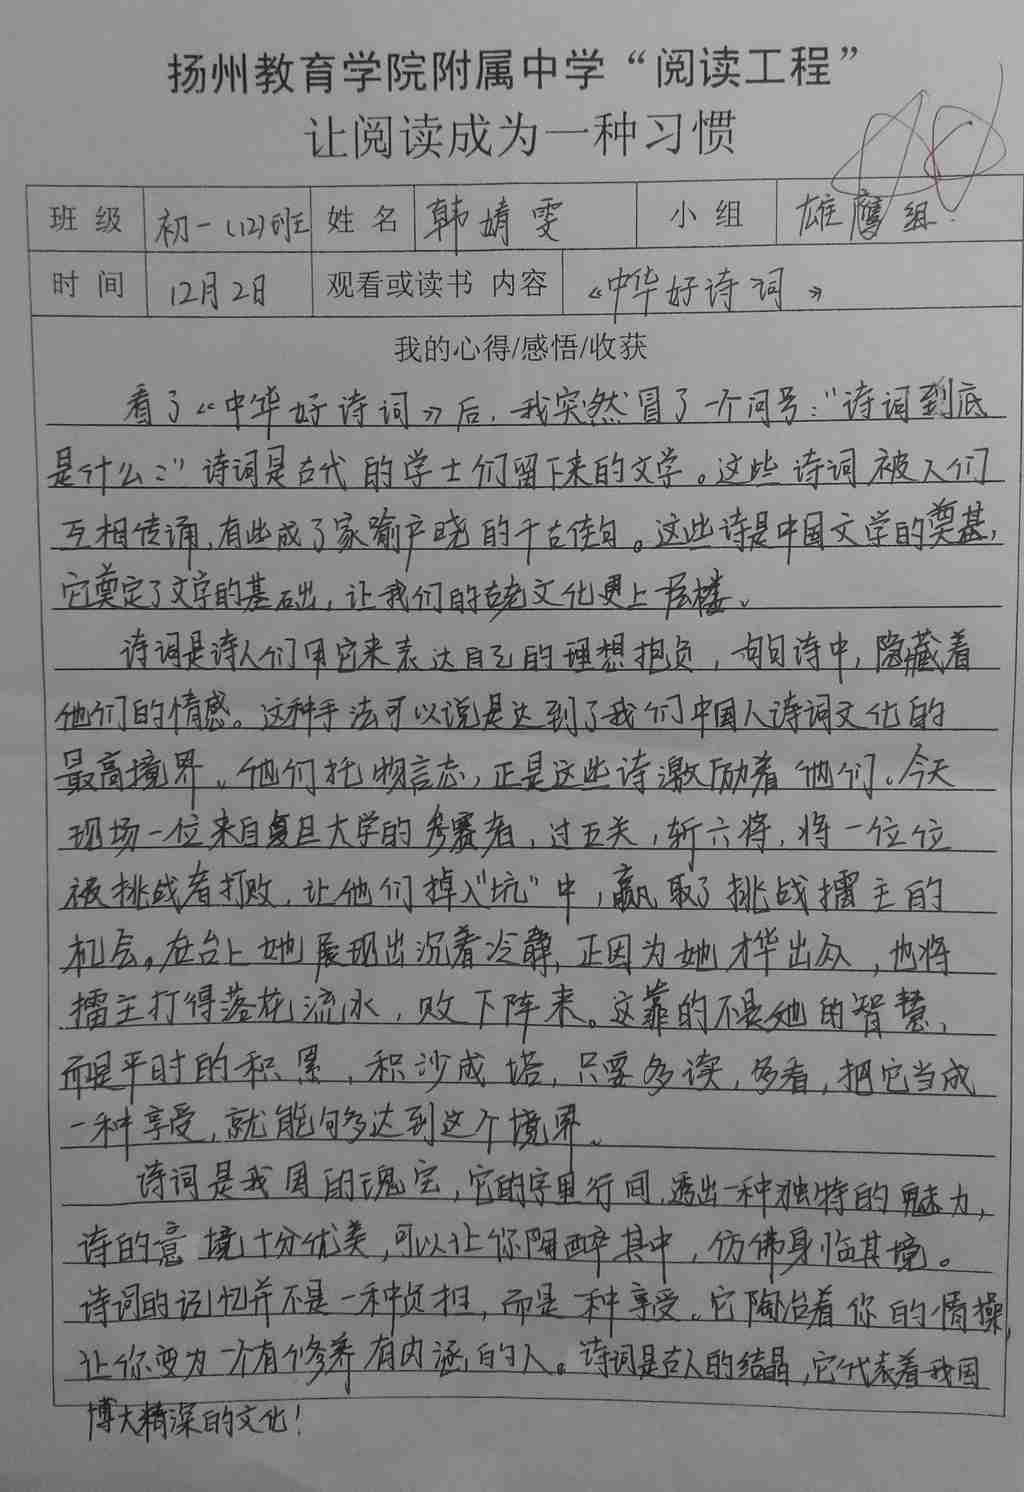 扬州教育学院附属中学“阅读工程”
让阅读成为一种习惯
班级 初一(12)班 姓名 韩婧雯 小组 雄鹰组
时间 12月2日 观看或读书 内容 《中华好诗词》
我的心得/感悟/收获
看了《中华好诗词》后，我突然冒了一个问号：“诗词到底
是什么？”诗词是古代的学士们留下来的文学。这些诗词被人们
互相传诵，有些成了家喻户晓的千古佳句。这些诗是中国文学的奠基，
它奠定了文学的基础，让我们的古老文化更上一层楼。
诗词是诗人们用它来表达自己的理想抱负，句句诗中，隐藏着
他们的情感。这种手法可以说是达到了我们中国人诗词文化的
最高境界。他们托物言志，正是这些诗激励着他们。今天
现场一位来自复旦大学的参赛者，过五关，斩六将，将一位位
被挑战者打败，让他们掉入“坑”中，赢取了挑战擂主的
机会。在台上她展现出沉着冷静，正因为她才华出众，也将
擂主打得落花流水，败下阵来。这靠的不是她的智慧，
而是平时的积累，积沙成塔，只要多读，多看，把它当成
一种享受，就能够多达到这个境界。
诗词是我国的瑰宝，它的字里行间，透出一种独特的魅力，
诗的意境十分优美，可以让你陶醉其中，仿佛身临其境。
诗词的记忆并不是一种负担，而是一种享受。它陶冶着你的情操，
让你变为一个有修养有内涵的人。诗词是古人的结晶，它代表着我国
博大精深的文化！